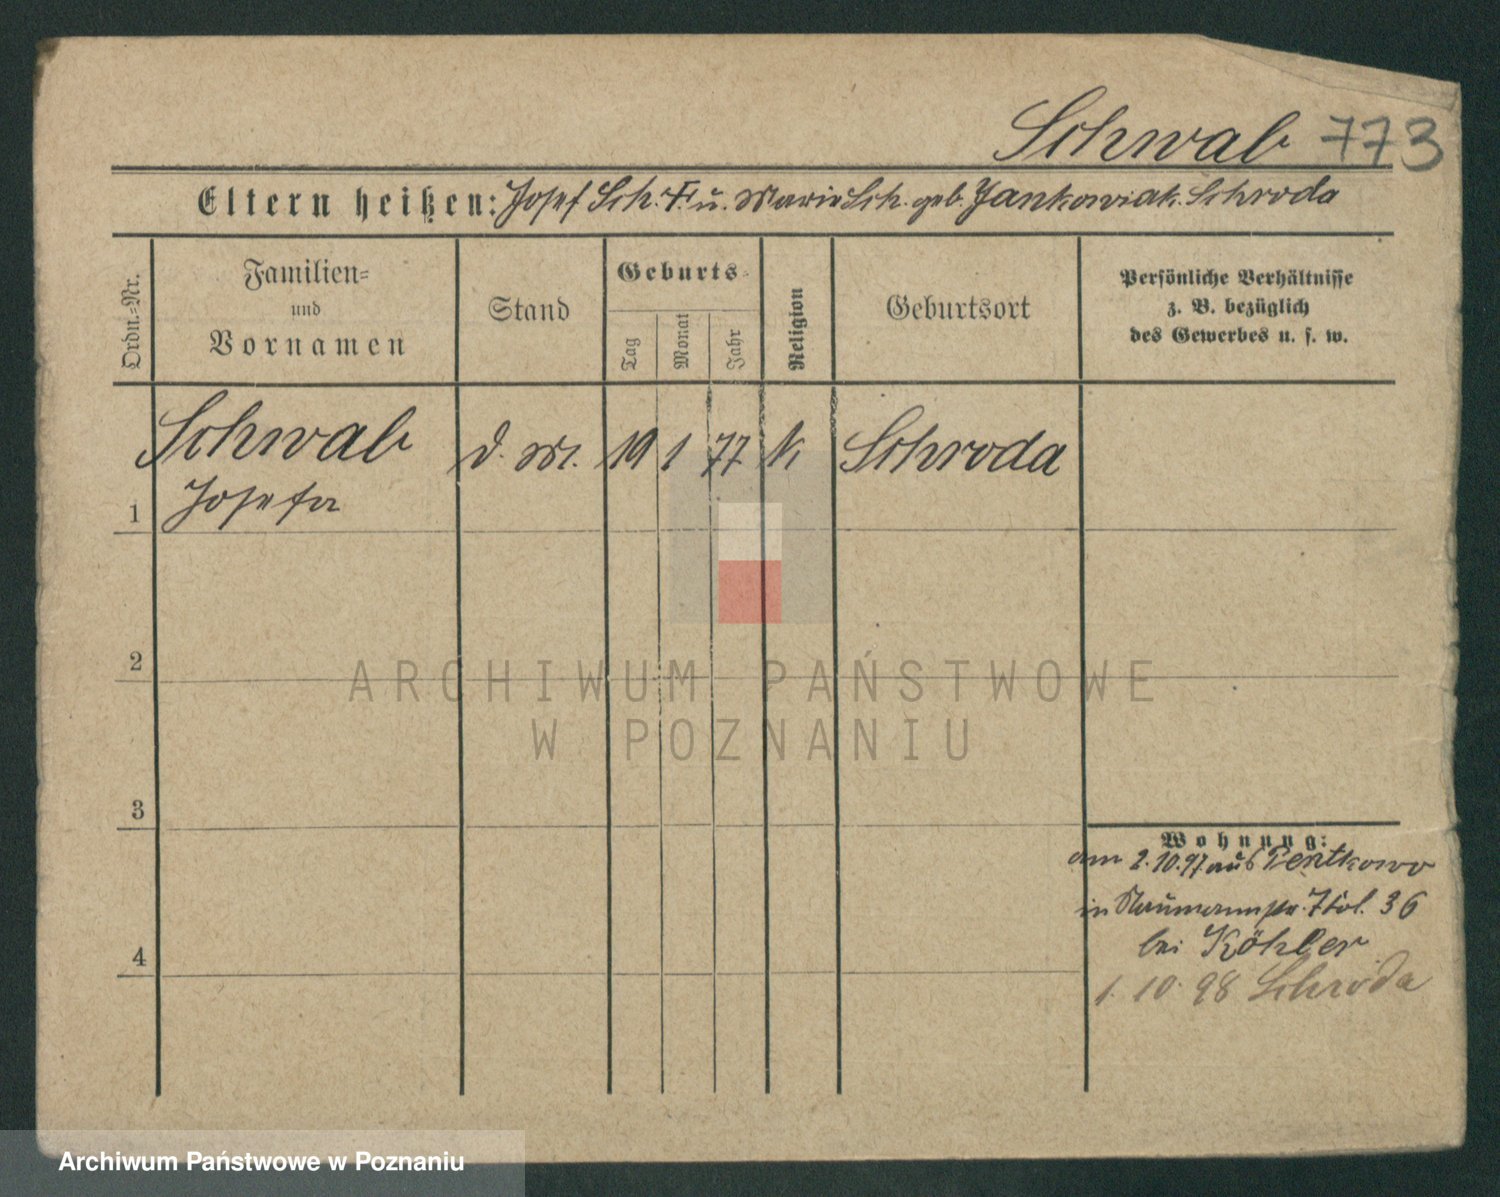 Schwab 773
Eltern heißen: Josef Sch. † u. Marie Sch. geb. Jankowiak. Schroda
Ordn.-Nr.
Familien-
und
Vornamen
Stand
Geburts-
Tag
Monat
Jahr
Religion
Geburtsort
Persönliche Verhältnisse
z. B. bezüglich
des Gewerbes u. s. w.
Schwab d. M. 19 1 77 k Schroda
Josefa
1
2
3
4
Wohnung:
am 2.10.97 aus Pentkowo
in 36
bei Köhler
1. 10. 98 Schroda
ARCHIWUM PAŃSTWOWE
W POZNANIU
Archiwum Państwowe w Poznaniu